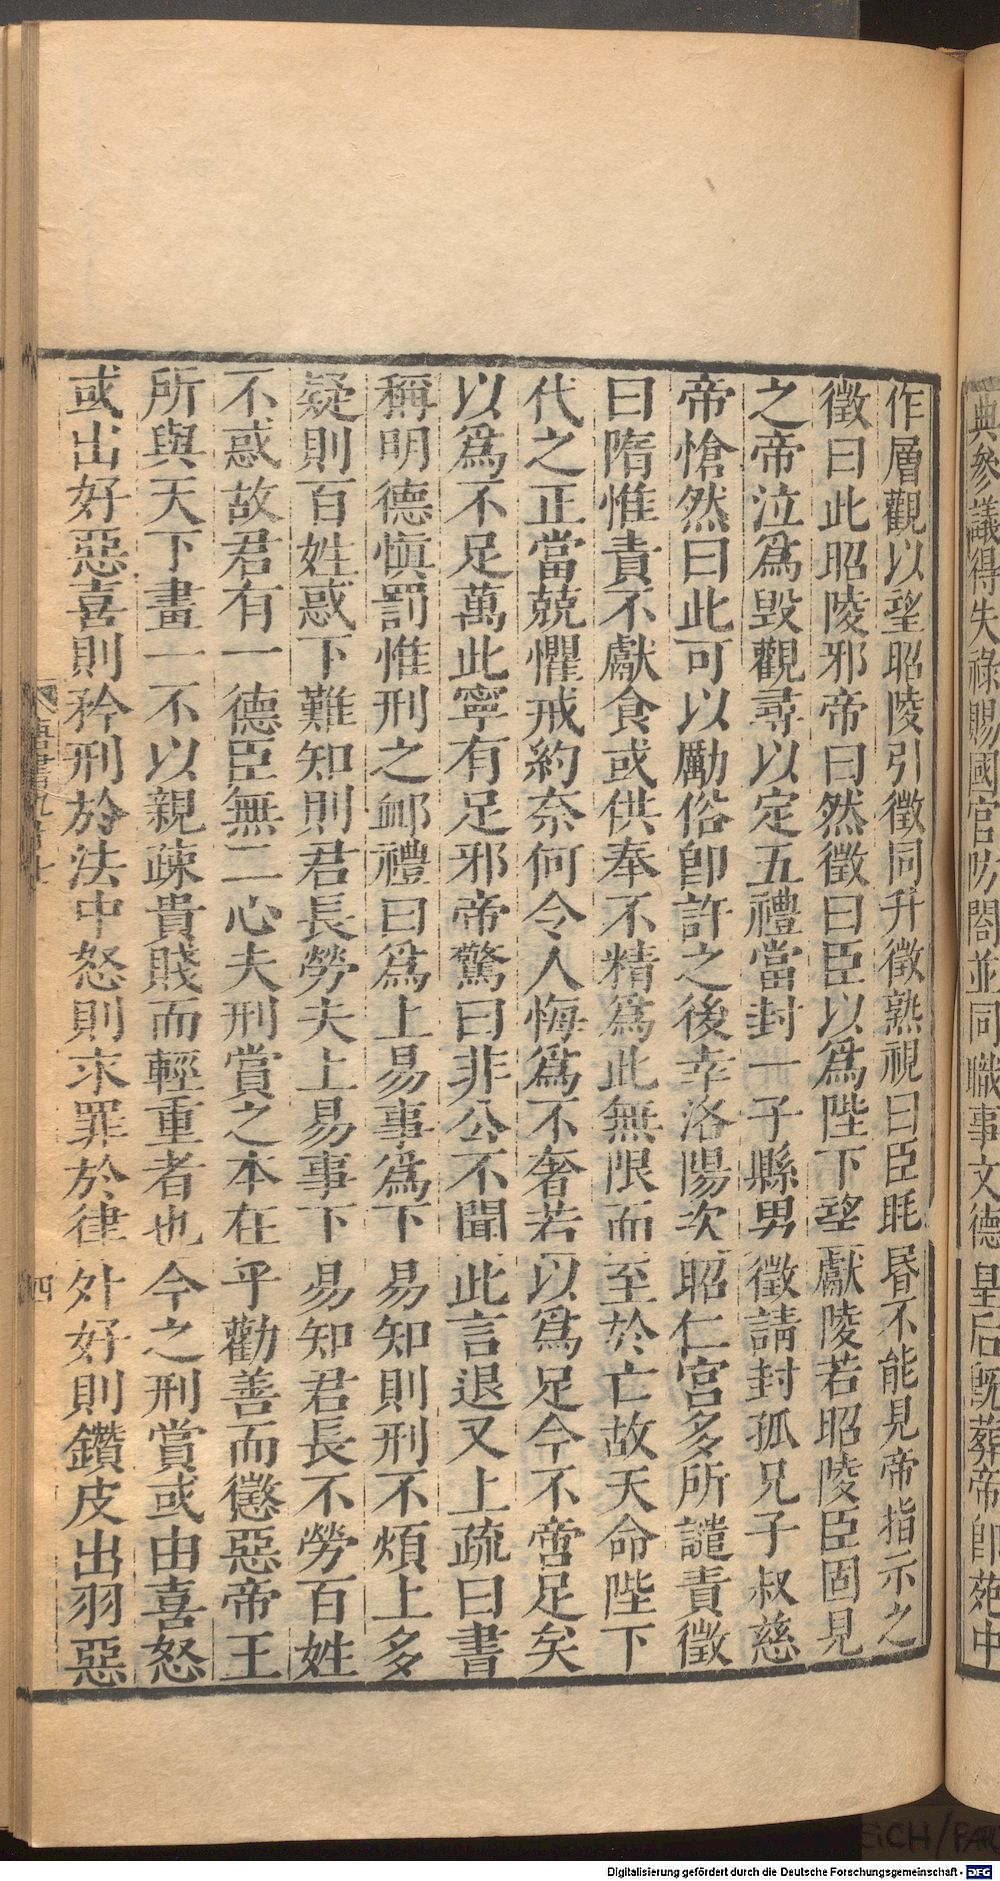 典參議得失祿賜國官防閤並同職事文德皇后既葬帝即苑中
作層觀以望昭陵引徵同升徵熟視曰臣眊昬不能見帝指示之
徵曰此昭陵邪帝曰然徵曰臣以爲陛下望獻陵若昭陵臣固見
之帝泣爲毀觀尋以定五禮當封一子縣男徵請封孤兄子叔慈
帝愴然曰此可以勵俗卽許之後幸洛陽次昭仁宮多所譴責徵
曰隋惟責不獻食或供奉不精爲此無限而至於亡故天命陛下
代之正當兢懼戒約奈何令人悔爲不奢若以爲足今不啻足矣
以爲不足萬此寧有足邪帝驚曰非公不聞此言退又上疏曰書
稱明德愼罰惟刑之卹禮曰爲上易事爲下易知則刑不煩上多
疑則百姓惑下難知則君長勞夫上易事下易知君長不勞百姓
不惑故君有一德臣無二心夫刑賞之本在乎勸善而懲惡帝王
所與天下畫一不以親疎貴賤而輕重者也今之刑賞或由喜怒
或出好惡喜則矜刑於法中怒則求罪於律外好則鑽皮出羽惡
四
Digitalisierung gefördert durch die Deutsche Forschungsgemeinschaft - DFG